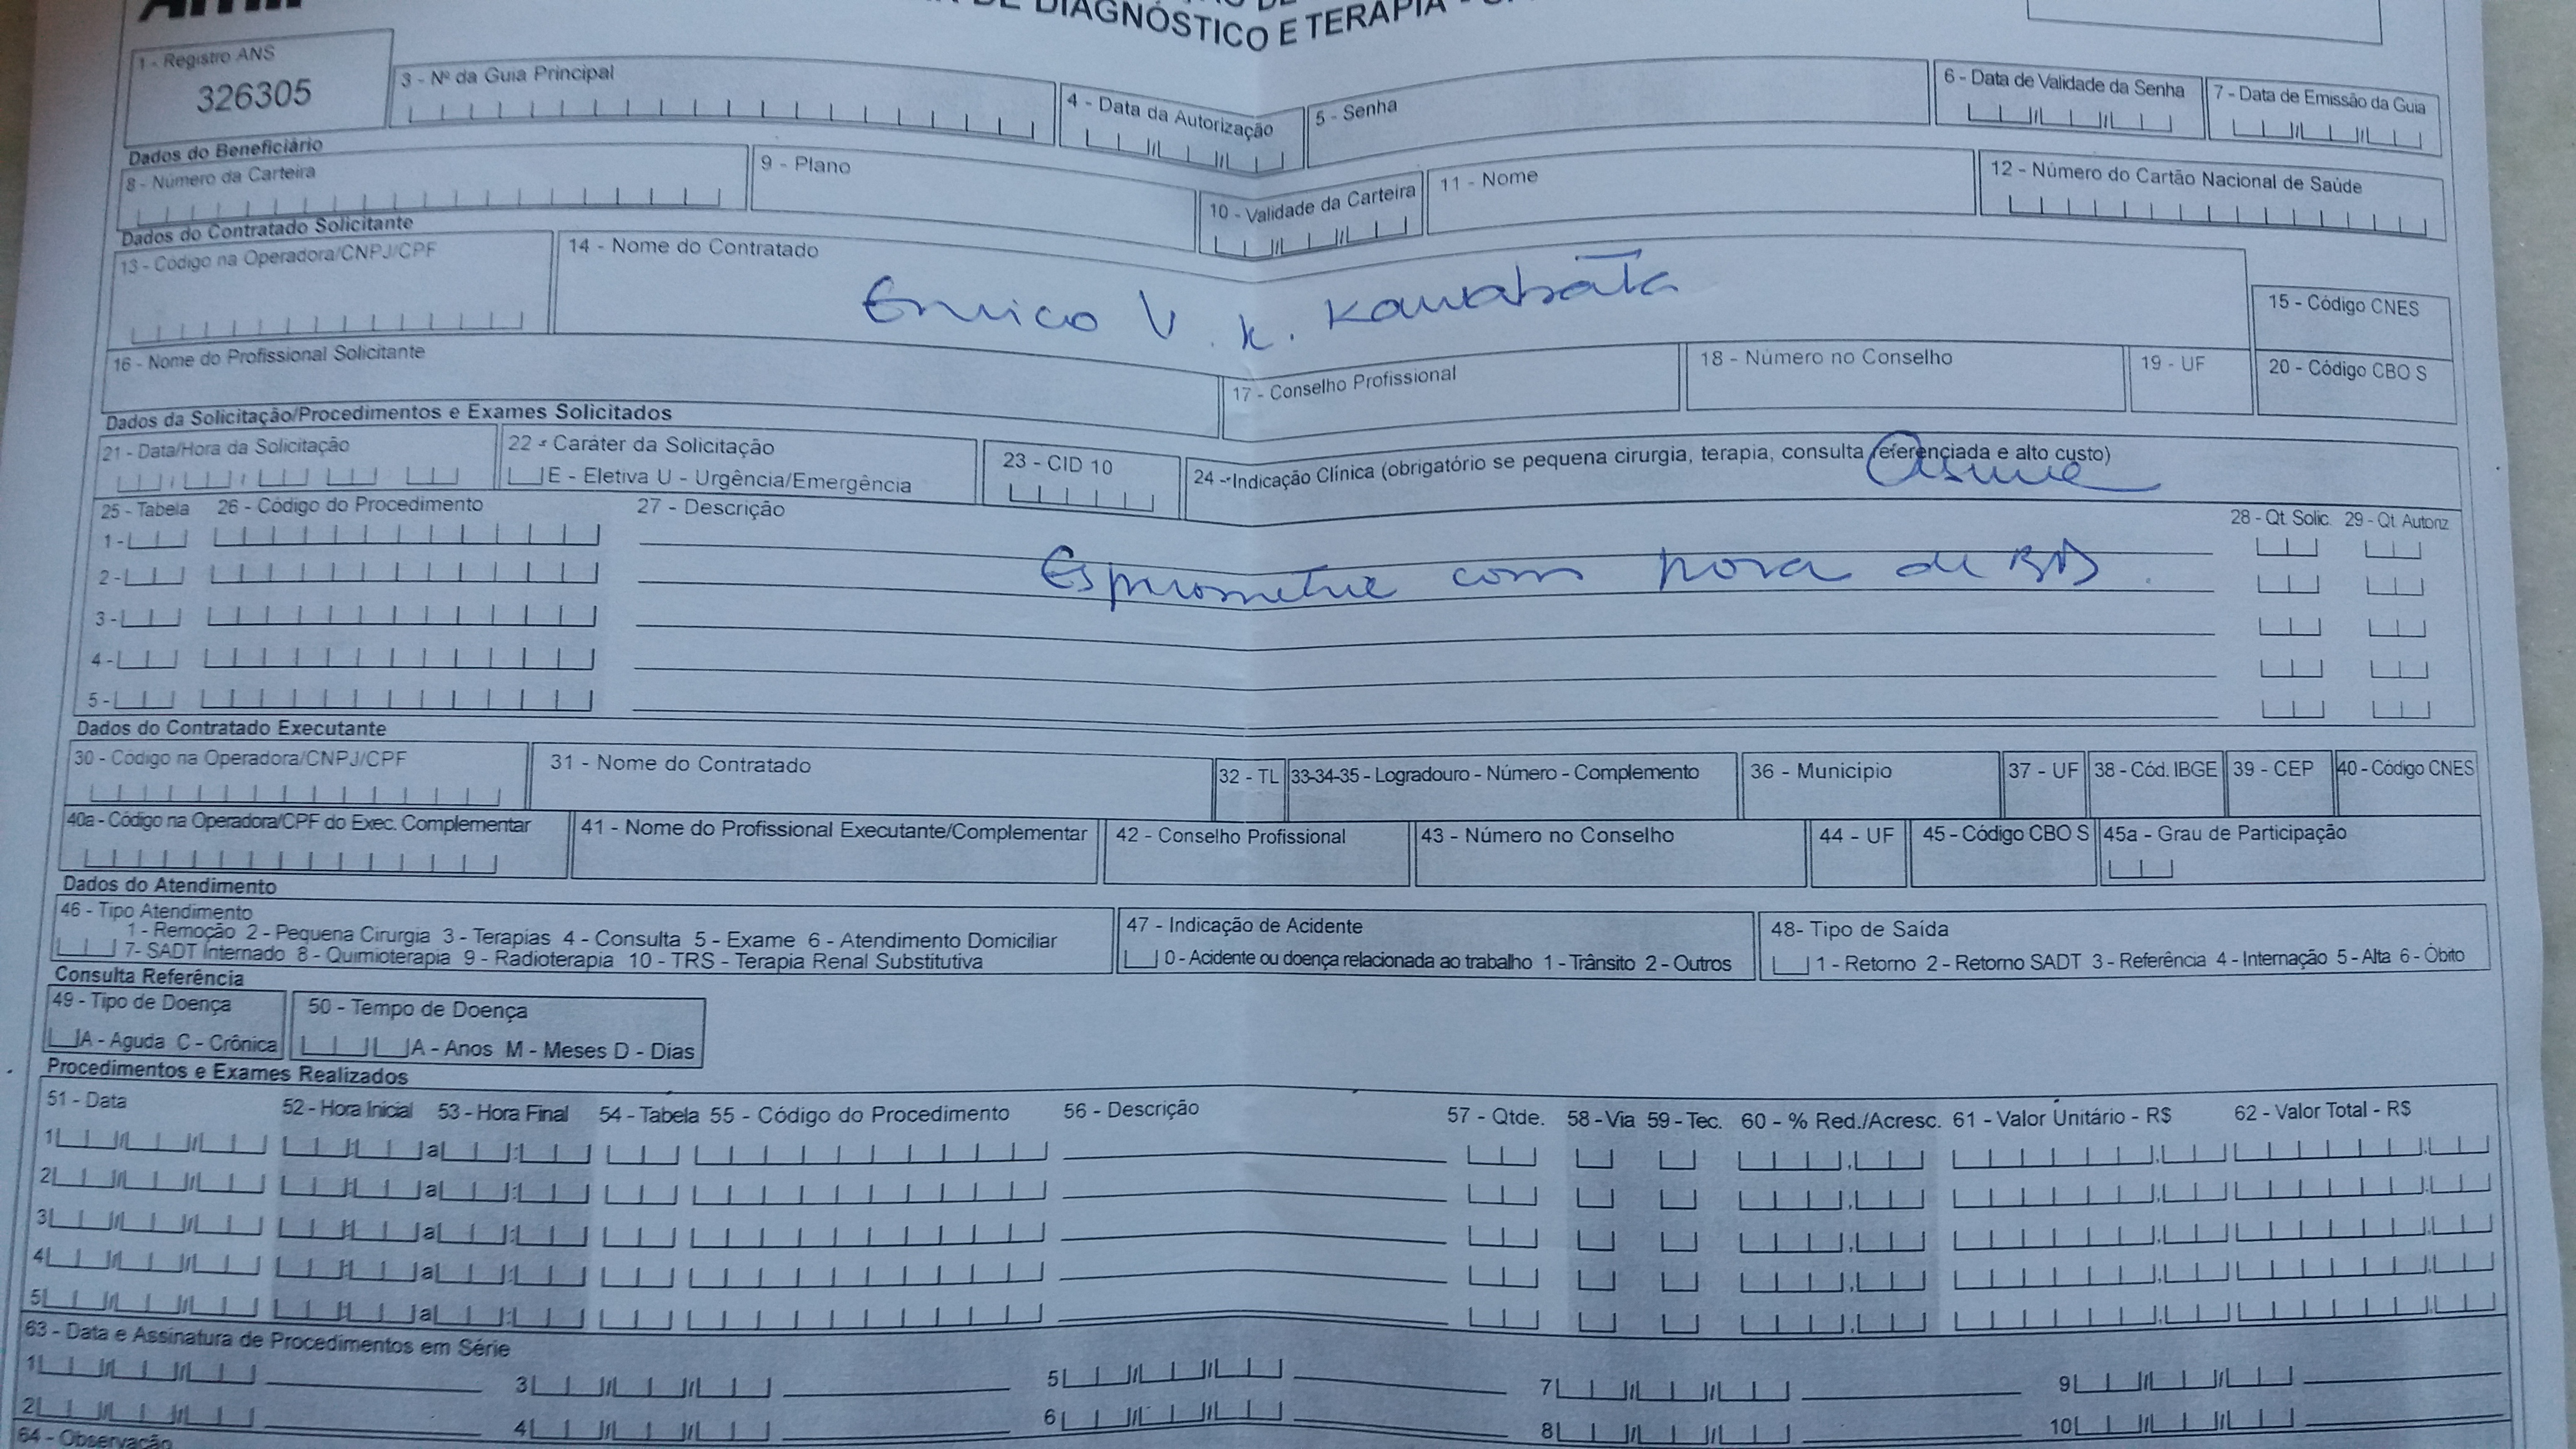 DIAGNÓSTICO E TERAPIA
1 - Registro ANS
326305
3 - Nº da Guia Principal
4 - Data da Autorização
5 - Senha
6 - Data de Validade da Senha
7 - Data de Emissão da Guia
Dados do Beneficiário
8 - Número da Carteira
9 - Plano
10 - Validade da Carteira
11 - Nome
12 - Número do Cartão Nacional de Saúde
Dados do Contratado Solicitante
13 - Código na Operadora/CNPJ/CPF
14 - Nome do Contratado
15 - Código CNES
16 - Nome do Profissional Solicitante
17 - Conselho Profissional
18 - Número no Conselho
19 - UF
20 - Código CBO S
Dados da Solicitação/Procedimentos e Exames Solicitados
21 - Data/Hora da Solicitação
22 - Caráter da Solicitação
E - Eletiva U - Urgência/Emergência
23 - CID 10
24 - Indicação Clínica (obrigatório se pequena cirurgia, terapia, consulta referenciada e alto custo)
Asma
25 - Tabela 26 - Código do Procedimento 27 - Descrição 28 - Qt Solic. 29 - Qt Autoriz
1 -
2 - Espirometria com prova de BD
3 -
4 -
5 -
Dados do Contratado Executante
30 - Código na Operadora/CNPJ/CPF
31 - Nome do Contratado
32 - TL
33-34-35 - Logradouro - Número - Complemento
36 - Município
37 - UF
38 - Cód. IBGE
39 - CEP
40 - Código CNES
40a - Código na Operadora/CPF do Exec. Complementar
41 - Nome do Profissional Executante/Complementar
42 - Conselho Profissional
43 - Número no Conselho
44 - UF
45 - Código CBO S
45a - Grau de Participação
Dados do Atendimento
46 - Tipo Atendimento
1 - Remoção 2 - Pequena Cirurgia 3 - Terapias 4 - Consulta 5 - Exame 6 - Atendimento Domiciliar
7 - SADT Internado 8 - Quimioterapia 9 - Radioterapia 10 - TRS - Terapia Renal Substitutiva
47 - Indicação de Acidente
0 - Acidente ou doença relacionada ao trabalho 1 - Trânsito 2 - Outros
48 - Tipo de Saída
1 - Retorno 2 - Retorno SADT 3 - Referência 4 - Internação 5 - Alta 6 - Óbito
Consulta Referência
49 - Tipo de Doença
A - Aguda C - Crônica
50 - Tempo de Doença
A - Anos M - Meses D - Dias
Procedimentos e Exames Realizados
51 - Data 52 - Hora Inicial 53 - Hora Final 54 - Tabela 55 - Código do Procedimento 56 - Descrição 57 - Qtde. 58 - Via 59 - Tec. 60 - % Red./Acresc. 61 - Valor Unitário - R$ 62 - Valor Total - R$
1 a
2 a
3 a
4 a
5 a
63 - Data e Assinatura de Procedimentos em Série
1 3 5 7 9
2 4 6 8 10
64 - Observação